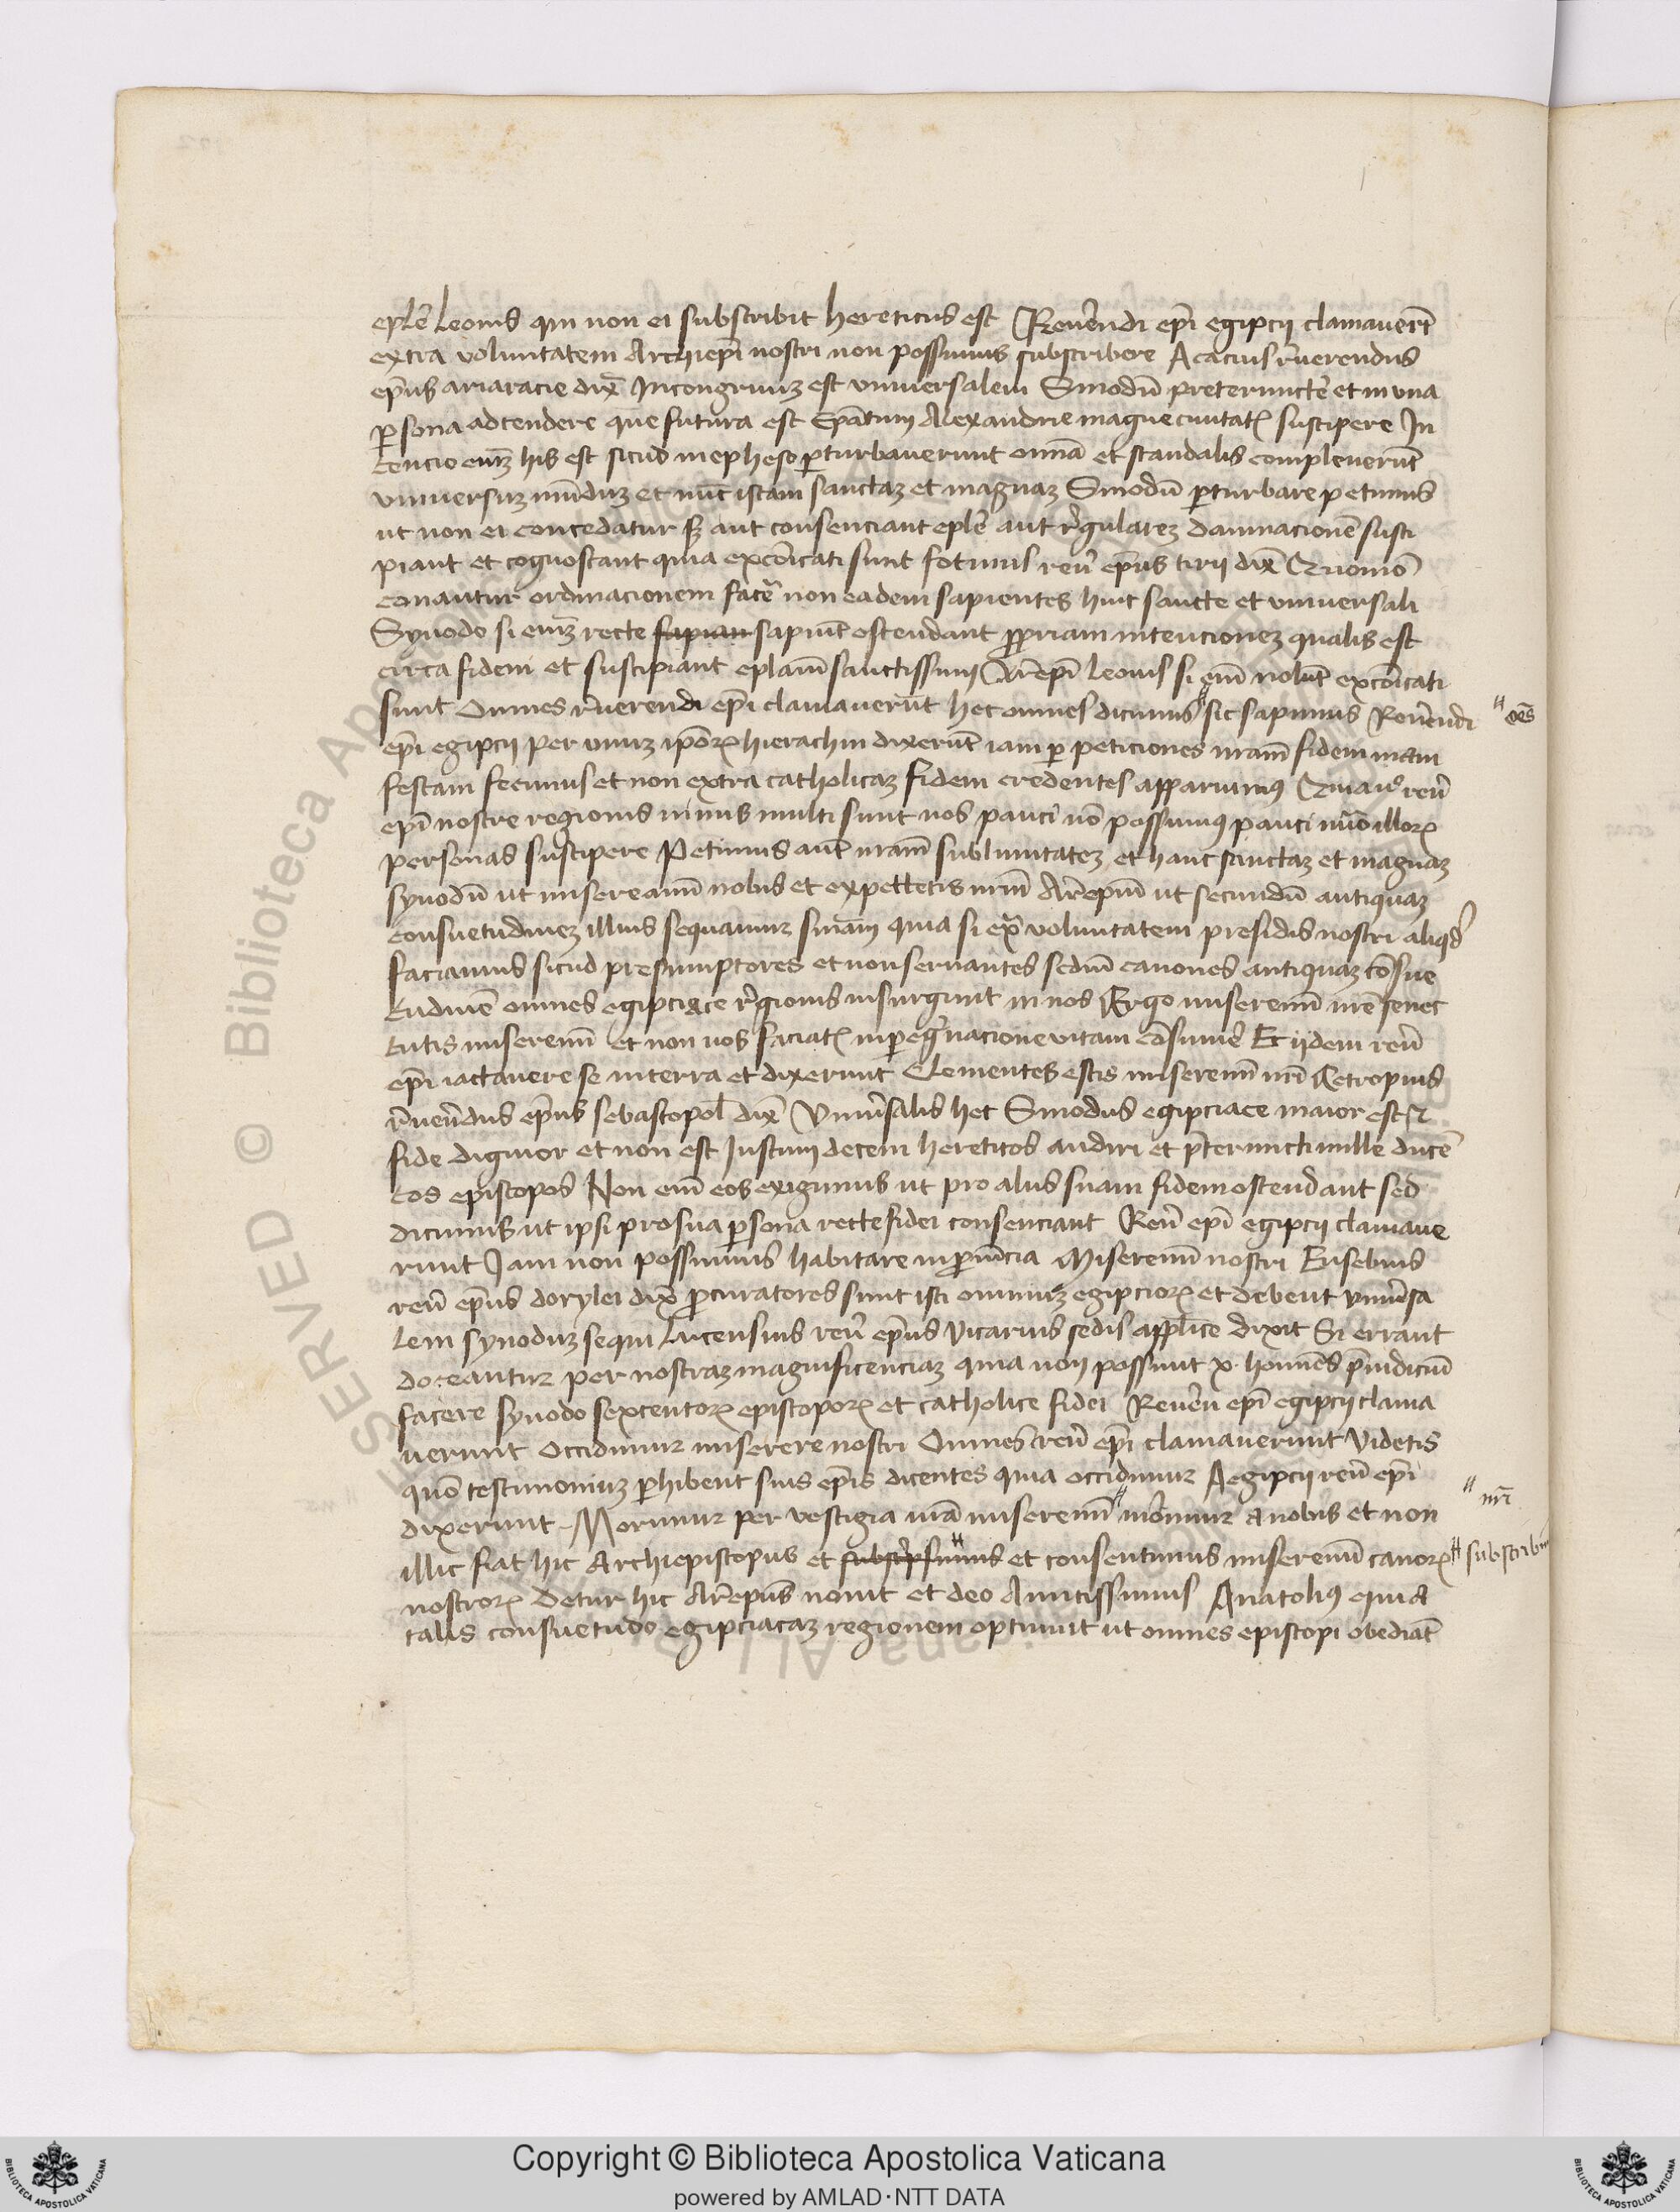 epl̄e leonis qui non ei subscribit hereticus est Reuer̄endi ep̄i egipcij clamauer̄t
extra voluntatem Archiep̄i nostri non possumus subscribere Acacius r̄uerendus
ep̄us ariaracie dix̄ Incongruuz est vniuersalem Sinodū preteriunctē et in vna
ꝑsona adtendere que futura est ep̄atum Alexandrie magne ciuitatꝭ suscipere In
tencio eniꝫ his est sicud in epheso ꝑturbauerunt omnā et scandalis compleuerūt
vniuersuꝫ mūduꝫ et nūc istam sanctaꝫ et magnaꝫ Sinodū ꝑturbare petimus
ut non ei concedatur sꝫ aut consenciant epl̄e aut r̄gulareꝫ damnacionē susci
piant et cognoscant quia excōicati sunt fotinus reū ep̄us tirij dix̄ Quomō
conantur ordinacionem facē non eadem sapientes huic sancte et vniuersali
Synodo si eniꝫ recte sapian sapiūt ostendant ꝓpriam intencioneꝫ qualis est
circa fidem et suscipiant epl̄am sanctissimi Ar̄epi leonis si eni nolūt excōicati
sunt Omnes r̄uerendi ep̄i clamauerūt hec omnes dicimus " sic sapimus Reuer̄endi " oēs
ep̄i egipcij per unuꝫ ip̄oꝝ hierachin dixerūt iam ꝑ peticiones nr̄am fidem mani
festam fecimus et non extra catholicaꝫ fidem credentes apparuimꝰ reū
ep̄i nostre regionis nimis multi sunt nos pauci nō possumꝰ pauci illoꝝ
personas suscipere Petimus aut̄ nr̄am sublimitateꝫ et hanc sanctaꝫ et magnaꝫ
synodū ut misereamī nobis et expectetis nr̄m Ar̄epm̄ ut secundū antiquaꝫ
consuetudineꝫ illius sequamur sn̄iam quia si ex̄ voluntatem presidis nostri aliqd̄
faciamus sicud presumptores et non seruantes sedm̄ canones antiquaꝫ cōsue
tudinē omnes egipciace r̄gionis insurgunt in nos Ergo miseremī nr̄e senec
tutis miseremī et non nos faciatꝭ in ꝑegr̄nacione vitam cōsumē Et ijdem reū
ep̄i iactauere se in terra et dixerunt Clementes estis miseremī nr̄i Cetropius
r̄uer̄dus ep̄us sebastopol̄ dix̄ Vniūsalis hec Sinodus egipciace maior est et
fide dignior et non est Iustum decem hereticos audiri et p̄teruncti mille ducē
tos episcopos Non eni eos exigimus ut pro alijs suam fidem ostendant sed
dicimus ut ipsi pro sua ꝑsona recte fidei consenciant Reū ep̄i egipcij clamaue
runt Iam non possumus habitare in ꝓuīcia Miseremī nostri Eusebius
reū ep̄us dorylei dix̄ ꝓcuratores sunt isti omniuꝫ egipcioꝝ et debent vniūsa
lem synoduꝫ sequi Lucensius reū ep̄us Vicarius sedis appl̄ice dixit Si errant
doceantur per nostraꝫ magnificenciaꝫ quia non possunt x homines p̄iudiciū
facere synodo sexcentoꝝ episcoporꝝ et catholice fidei Reuēn ep̄i egipcij clama
uerunt occidimur miserere nostri Omnes reū ep̄i clamauerunt Videtis
quō testimoniuꝫ ꝑhibent suis ep̄is dicentes quia occidimur Aegipcij reū ep̄i
dixerunt Morimur per vestigia nr̄a miseremī " moriimur a nobis et non " nr̄i
illic fiat hic Archiepiscopus et subscripsimus " et consentimus miseremī canoꝝ " subscribim
nostroꝝ Detur hic Ar̄epus nouit et deo Amicissimus Anatoliꝰ quia
talis consuetudo egipciacaꝫ regionem optinuit ut omnes episcopi obediāt
© Biblioteca Apostolica Vaticana ALL RIGHTS RESERVED
Copyright © Biblioteca Apostolica Vaticana
powered by AMLAD·NTT DATA
BIBLIOTECA APOSTOLICA VATICANA
BIBLIOTECA APOSTOLICA VATICANA